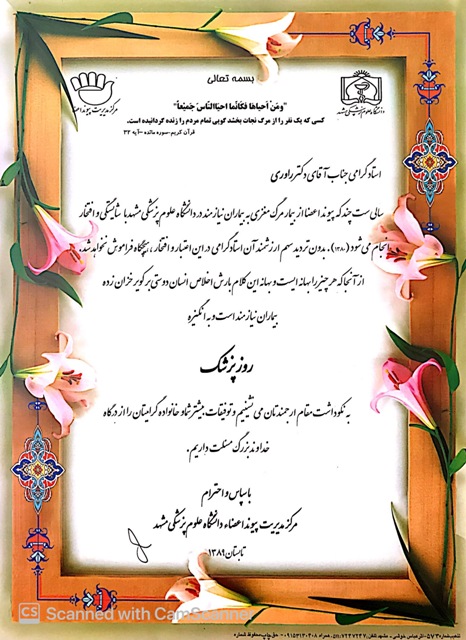 بسمه تعالی
مرکز مدیریت پیوند اعضاء
دانشگاه علوم پزشکی مشهد
"وَمَنْ اَحیاهَا فَکَاَنَّما اَحیَاالنّاسَ جَمیعاً"
کسی که یک نفر را از مرگ نجات بخشد گویی تمام مردم را زنده گردانیده است.
قرآن کریم-سوره مائده-آیه ۳۲
استاد گرامی جناب آقای دکتر راوری
سالی ست چند که پیوند اعضا از بیمار مرگ مغزی به بیماران نیازمند در دانشگاه علوم پزشکی مشهد با شایستگی و افتخار
انجام می شود (۱۳۸۰). بدون تردید سهم ارزشمند آن استاد گرامی در این اعتبار و افتخار، هیچگاه فراموش نخواهد شد.
از آنجا که هر چیز را بهانه ایست و بهانه این کلام بارش اخلاص انسان دوستی بر کویر خزان زده
بیماران نیازمند است و به انگیزه
روز پزشک
به نکوداشت مقام ارجمندتان می نشینیم و توفیقات بیشتر شما و خانواده گرامیتان را از درگاه
خداوند بزرگ مسئلت داریم.
با سپاس و احترام
مرکز مدیریت پیوند اعضاء دانشگاه علوم پزشکی مشهد
تابستان ۱۳۸۹
CS Scanned with CamScanner